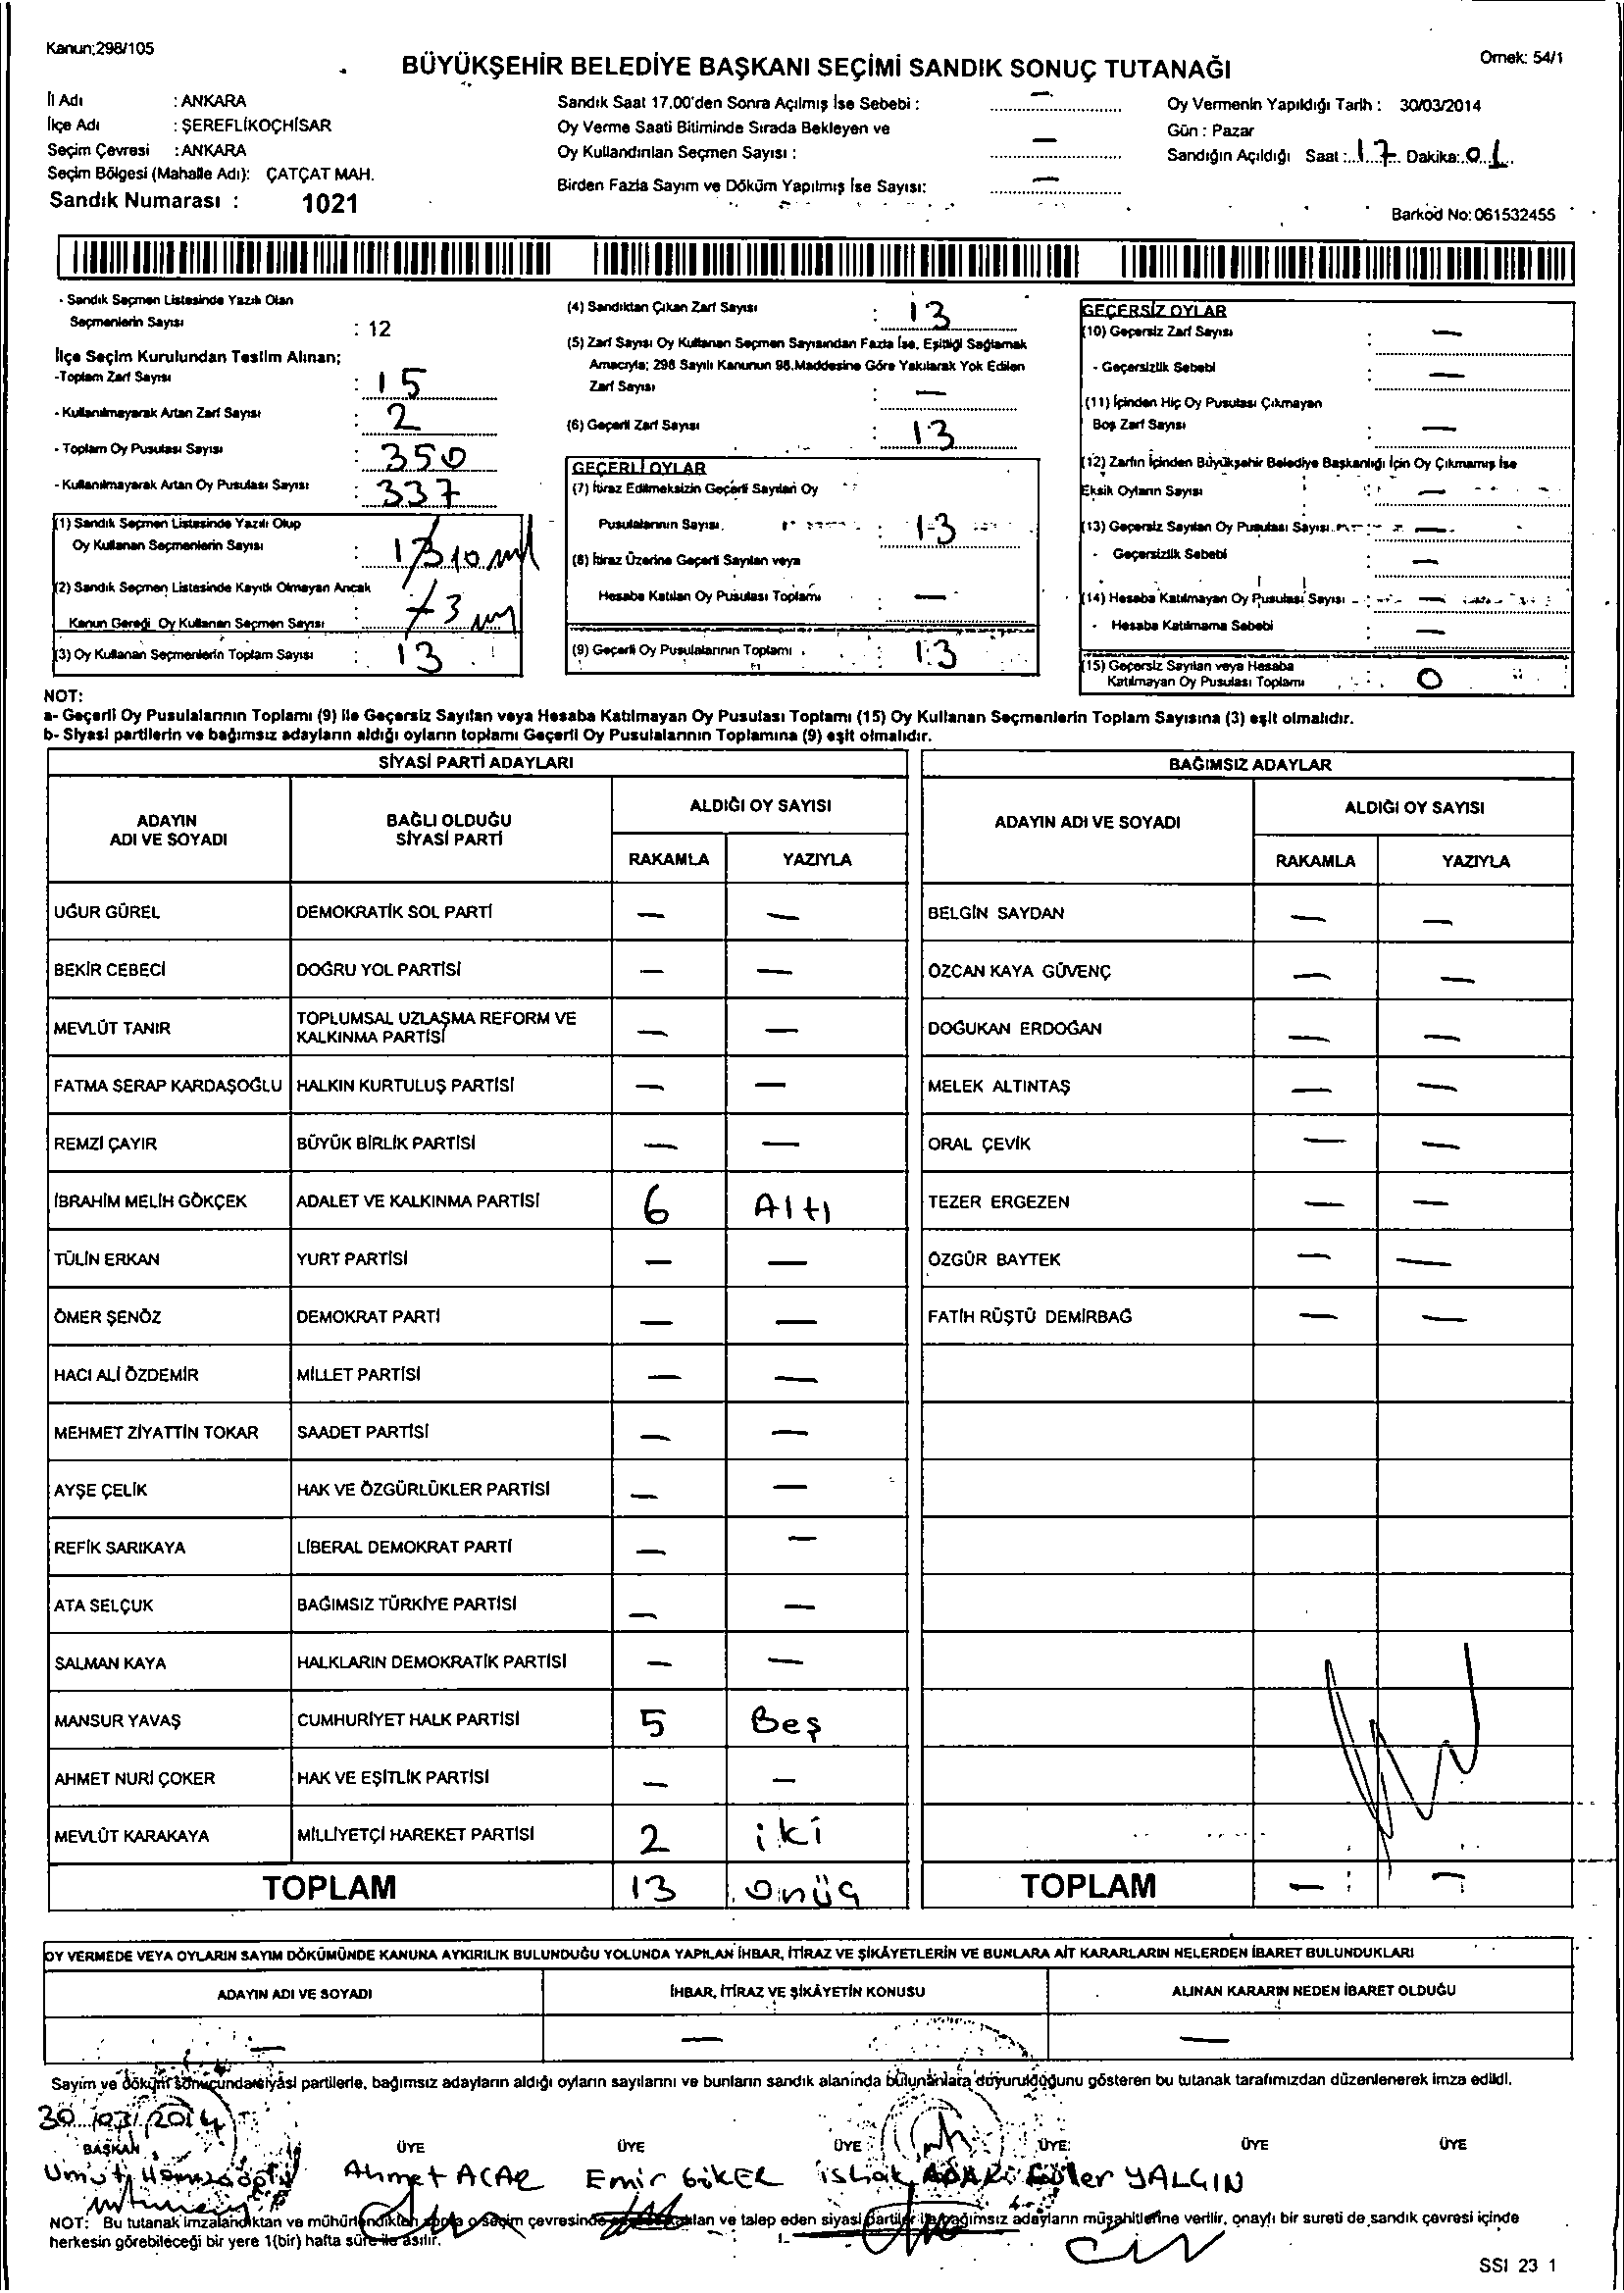 Kanun:298/105
Örnek: 54/1
BÜYÜKŞEHİR BELEDİYE BAŞKANI SEÇİMİ SANDIK SONUÇ TUTANAĞI
İl Adı : ANKARA
İlçe Adı : ŞEREFLİKOÇHİSAR
Seçim Çevresi : ANKARA
Seçim Bölgesi (Mahalle Adı): ÇATÇAT MAH.
Sandık Numarası : 1021
Sandık Saat 17.00'den Sonra Açılmış İse Sebebi : —
Oy Verme Saati Bitiminde Sırada Bekleyen ve
Oy Kullandırılan Seçmen Sayısı : —
Birden Fazla Sayım ve Döküm Yapılmış İse Sayısı: —
Oy Vermenin Yapıldığı Tarih : 30/03/2014
Gün : Pazar
Sandığın Açıldığı Saat : 17 Dakika: 01
Barkod No: 061532455
- Sandık Seçmen Listesinde Yazılı Olan
Seçmenlerin Sayısı : 12
İlçe Seçim Kurulundan Teslim Alınan;
-Toplam Zarf Sayısı : 15
- Kullanılmayarak Artan Zarf Sayısı : 2
- Toplam Oy Pusulası Sayısı : 350
- Kullanılmayarak Artan Oy Pusulası Sayısı : 337
(1) Sandık Seçmen Listesinde Yazılı Olup
Oy Kullanan Seçmenlerin Sayısı : 13 10
(2) Sandık Seçmen Listesinde Kayıtlı Olmayan Ancak
Kanun Gereği Oy Kullanan Seçmen Sayısı : 3
(3) Oy Kullanan Seçmenlerin Toplam Sayısı : 13
(4) Sandıktan Çıkan Zarf Sayısı : 13
(5) Zarf Sayısı Oy Kullanan Seçmen Sayısından Fazla İse, Eşitliği Sağlamak
Amacıyla; 298 Sayılı Kanunun 98.Maddesine Göre Yakılarak Yok Edilen
Zarf Sayısı : —
(6) Geçerli Zarf Sayısı : 13
GEÇERLİ OYLAR
(7) İtiraz Edilmeksizin Geçerli Sayılan Oy
Pusulalarının Sayısı : 13
(8) İtiraz Üzerine Geçerli Sayılan veya
Hesaba Katılan Oy Pusulası Toplamı : —
(9) Geçerli Oy Pusulalarının Toplamı : 13
GEÇERSİZ OYLAR
(10) Geçersiz Zarf Sayısı : —
- Geçersizlik Sebebi : —
(11) İçinden Hiç Oy Pusulası Çıkmayan
Boş Zarf Sayısı : —
(12) Zarfın İçinden Büyükşehir Belediye Başkanlığı İçin Oy Çıkmamış İse
Eksik Oyların Sayısı : —
(13) Geçersiz Sayılan Oy Pusulası Sayısı : —
- Geçersizlik Sebebi : —
(14) Hesaba Katılmayan Oy Pusulası Sayısı : —
- Hesaba Katılmama Sebebi : —
(15) Geçersiz Sayılan veya Hesaba
Katılmayan Oy Pusulası Toplamı : 0
NOT:
a- Geçerli Oy Pusulalarının Toplamı (9) ile Geçersiz Sayılan veya Hesaba Katılmayan Oy Pusulası Toplamı (15) Oy Kullanan Seçmenlerin Toplam Sayısına (3) eşit olmalıdır.
b- Siyasi partilerin ve bağımsız adayların aldığı oyların toplamı Geçerli Oy Pusulalarının Toplamına (9) eşit olmalıdır.
SİYASİ PARTİ ADAYLARI
ADAYIN ADI VE SOYADI BAĞLI OLDUĞU SİYASİ PARTİ ALDIĞI OY SAYISI
RAKAMLA YAZIYLA
UĞUR GÜREL DEMOKRATİK SOL PARTİ — —
BEKİR CEBECİ DOĞRU YOL PARTİSİ — —
MEVLÜT TANIR TOPLUMSAL UZLAŞMA REFORM VE KALKINMA PARTİSİ — —
FATMA SERAP KARDAŞOĞLU HALKIN KURTULUŞ PARTİSİ — —
REMZİ ÇAYIR BÜYÜK BİRLİK PARTİSİ — —
İBRAHİM MELİH GÖKÇEK ADALET VE KALKINMA PARTİSİ 6 Altı
TÜLİN ERKAN YURT PARTİSİ — —
ÖMER ŞENÖZ DEMOKRAT PARTİ — —
HACI ALİ ÖZDEMİR MİLLET PARTİSİ — —
MEHMET ZİYATTİN TOKAR SAADET PARTİSİ — —
AYŞE ÇELİK HAK VE ÖZGÜRLÜKLER PARTİSİ — —
REFİK SARIKAYA LİBERAL DEMOKRAT PARTİ — —
ATA SELÇUK BAĞIMSIZ TÜRKİYE PARTİSİ — —
SALMAN KAYA HALKLARIN DEMOKRATİK PARTİSİ — —
MANSUR YAVAŞ CUMHURİYET HALK PARTİSİ 5 Beş
AHMET NURİ ÇOKER HAK VE EŞİTLİK PARTİSİ — —
MEVLÜT KARAKAYA MİLLİYETÇİ HAREKET PARTİSİ 2 iki
TOPLAM 13 onüç
BAĞIMSIZ ADAYLAR
ADAYIN ADI VE SOYADI ALDIĞI OY SAYISI
RAKAMLA YAZIYLA
BELGİN SAYDAN — —
ÖZCAN KAYA GÜVENÇ — —
DOĞUKAN ERDOĞAN — —
MELEK ALTINTAŞ — —
ORAL ÇEVİK — —
TEZER ERGEZEN — —
ÖZGÜR BAYTEK — —
FATİH RÜŞTÜ DEMİRBAĞ — —
TOPLAM — —
OY VERMEDE VEYA OYLARIN SAYIM DÖKÜMÜNDE KANUNA AYKIRILIK BULUNDUĞU YOLUNDA YAPILAN İHBAR, İTİRAZ VE ŞİKÂYETLERİN VE BUNLARA AİT KARARLARIN NELERDEN İBARET BULUNDUKLARI
ADAYIN ADI VE SOYADI İHBAR, İTİRAZ VE ŞİKÂYETİN KONUSU ALINAN KARARIN NEDEN İBARET OLDUĞU
— — —
Sayım ve döküm sonucunda siyasi partilerle, bağımsız adayların aldığı oyların sayılarını ve bunların sandık alanında bulunanlara duyurulduğunu gösteren bu tutanak tarafımızdan düzenlenerek imza edildi.
30/03/2014
BAŞKAN ÜYE ÜYE ÜYE ÜYE ÜYE ÜYE
Umut Ahmet ACAR Emir GÖKER İshak Güler YALÇIN
NOT: Bu tutanak imzalandıktan ve mühürlendikten sonra o seçim çevresinde ve talep eden siyasi partiler ile bağımsız adayların müşahitlerine verilir, onaylı bir sureti de sandık çevresi içinde
herkesin görebileceği bir yere 1(bir) hafta süre ile asılır.
SSI 23 1